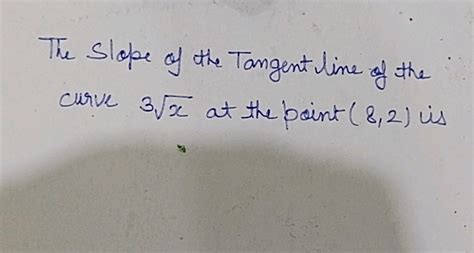 The Slope of the Tangent line of the
curve 3√x at the point (8,2) is